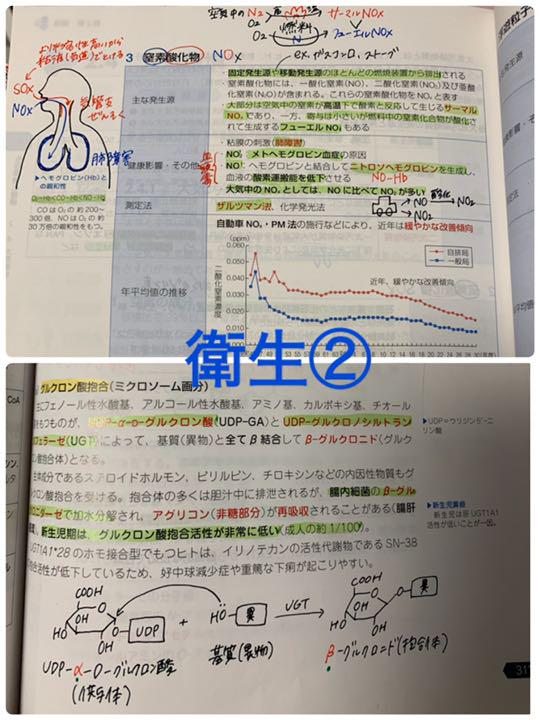 空気中のN₂ 高温で燃焼 サーマルNOx
O₂
燃料
O₂ N フューエルNOx
ex. ガスコンロ、ストーブ
3 窒素酸化物 NOx
SOx
NOx
気管支
ぜんそく
肺障害
主な発生源
・固定発生源や移動発生源のほとんどの燃焼装置から排出される
・窒素酸化物には、一酸化窒素(NO)、二酸化窒素(NO₂)及び亜酸化窒素
(N₂O)が含まれる。これらの窒素酸化物をNOₓと表す
・大部分は空気中の窒素が高温下で酸素と反応して生じるサーマル
NOₓであり、一方、寄与は小さいが燃料中の窒素化合物が酸化
されて生成するフューエルNOₓもある
健康影響・その他
・粘膜の刺激(肺障害)
・NO:メトヘモグロビン血症の原因
・NO:ヘモグロビンと結合してニトロソヘモグロビンを生成し、
血液の酸素運搬能を低下させる NO-Hb
・大気中のNOₓとしては、NOに比べてNO₂が多い
▶ヘモグロビン(Hb)と
の親和性
O₂-Hb<CO-Hb<NO-Hb
COはO₂の約200〜
300倍、NOはO₂の約
30万倍の親和性をもつ。
測定法
ザルツマン法、化学発光法
NO 酸化 NO₂
NO₂
自動車NOₓ・PM法の施行などにより、近年は緩やかな改善傾向
年平均値の推移
(ppm)
0.060
0.050
0.040
0.030
0.020
0.010
0.000
二酸化窒素濃度
自排局
一般局
近年、緩やかな改善傾向
(年度)
衛生②
グルクロン酸抱合(ミクロソーム画分)
主にフェノール性水酸基、アルコール性水酸基、アミノ基、カルボキシ基、チオール
をもつものが、UDP-α-D-グルクロン酸(UDP-GA)とUDP-グルクロノシルトラン
スフェラーゼ(UGT)によって、基質(異物)と全てβ結合してβ-グルクロニド(グルク
ロン酸抱合体)となる。
生体成分であるステロイドホルモン、ビリルビン、チロキシンなどの内因性物質もグ
ルクロン酸抱合を受ける。抱合体の多くは胆汁中に排泄されるが、腸内細菌のβ-グル
クロニダーゼで加水分解され、アグリコン(非糖部分)が再吸収されることがある(腸肝
新生児期は、グルクロン酸抱合活性が非常に低い(成人の約1/100)。
UGT1A1*28のホモ接合型でもつヒトは、イリノテカンの活性代謝物であるSN-38
抱合活性が低下しているため、好中球減少症や重篤な下痢が起こりやすい。
▶UDP=ウリジン5'-ニ
リン酸
▶新生児黄疸
新生児は肝UGT1A1
活性が低いことが一因。
CoA
COOH
HO
OH
O-UDP
+
HÖ-異
UGT
COOH
O-異
HO
OH
UDP-α-D-グルクロン酸
(供与体)
基質(異物)
β-グルクロニド(抱合体)